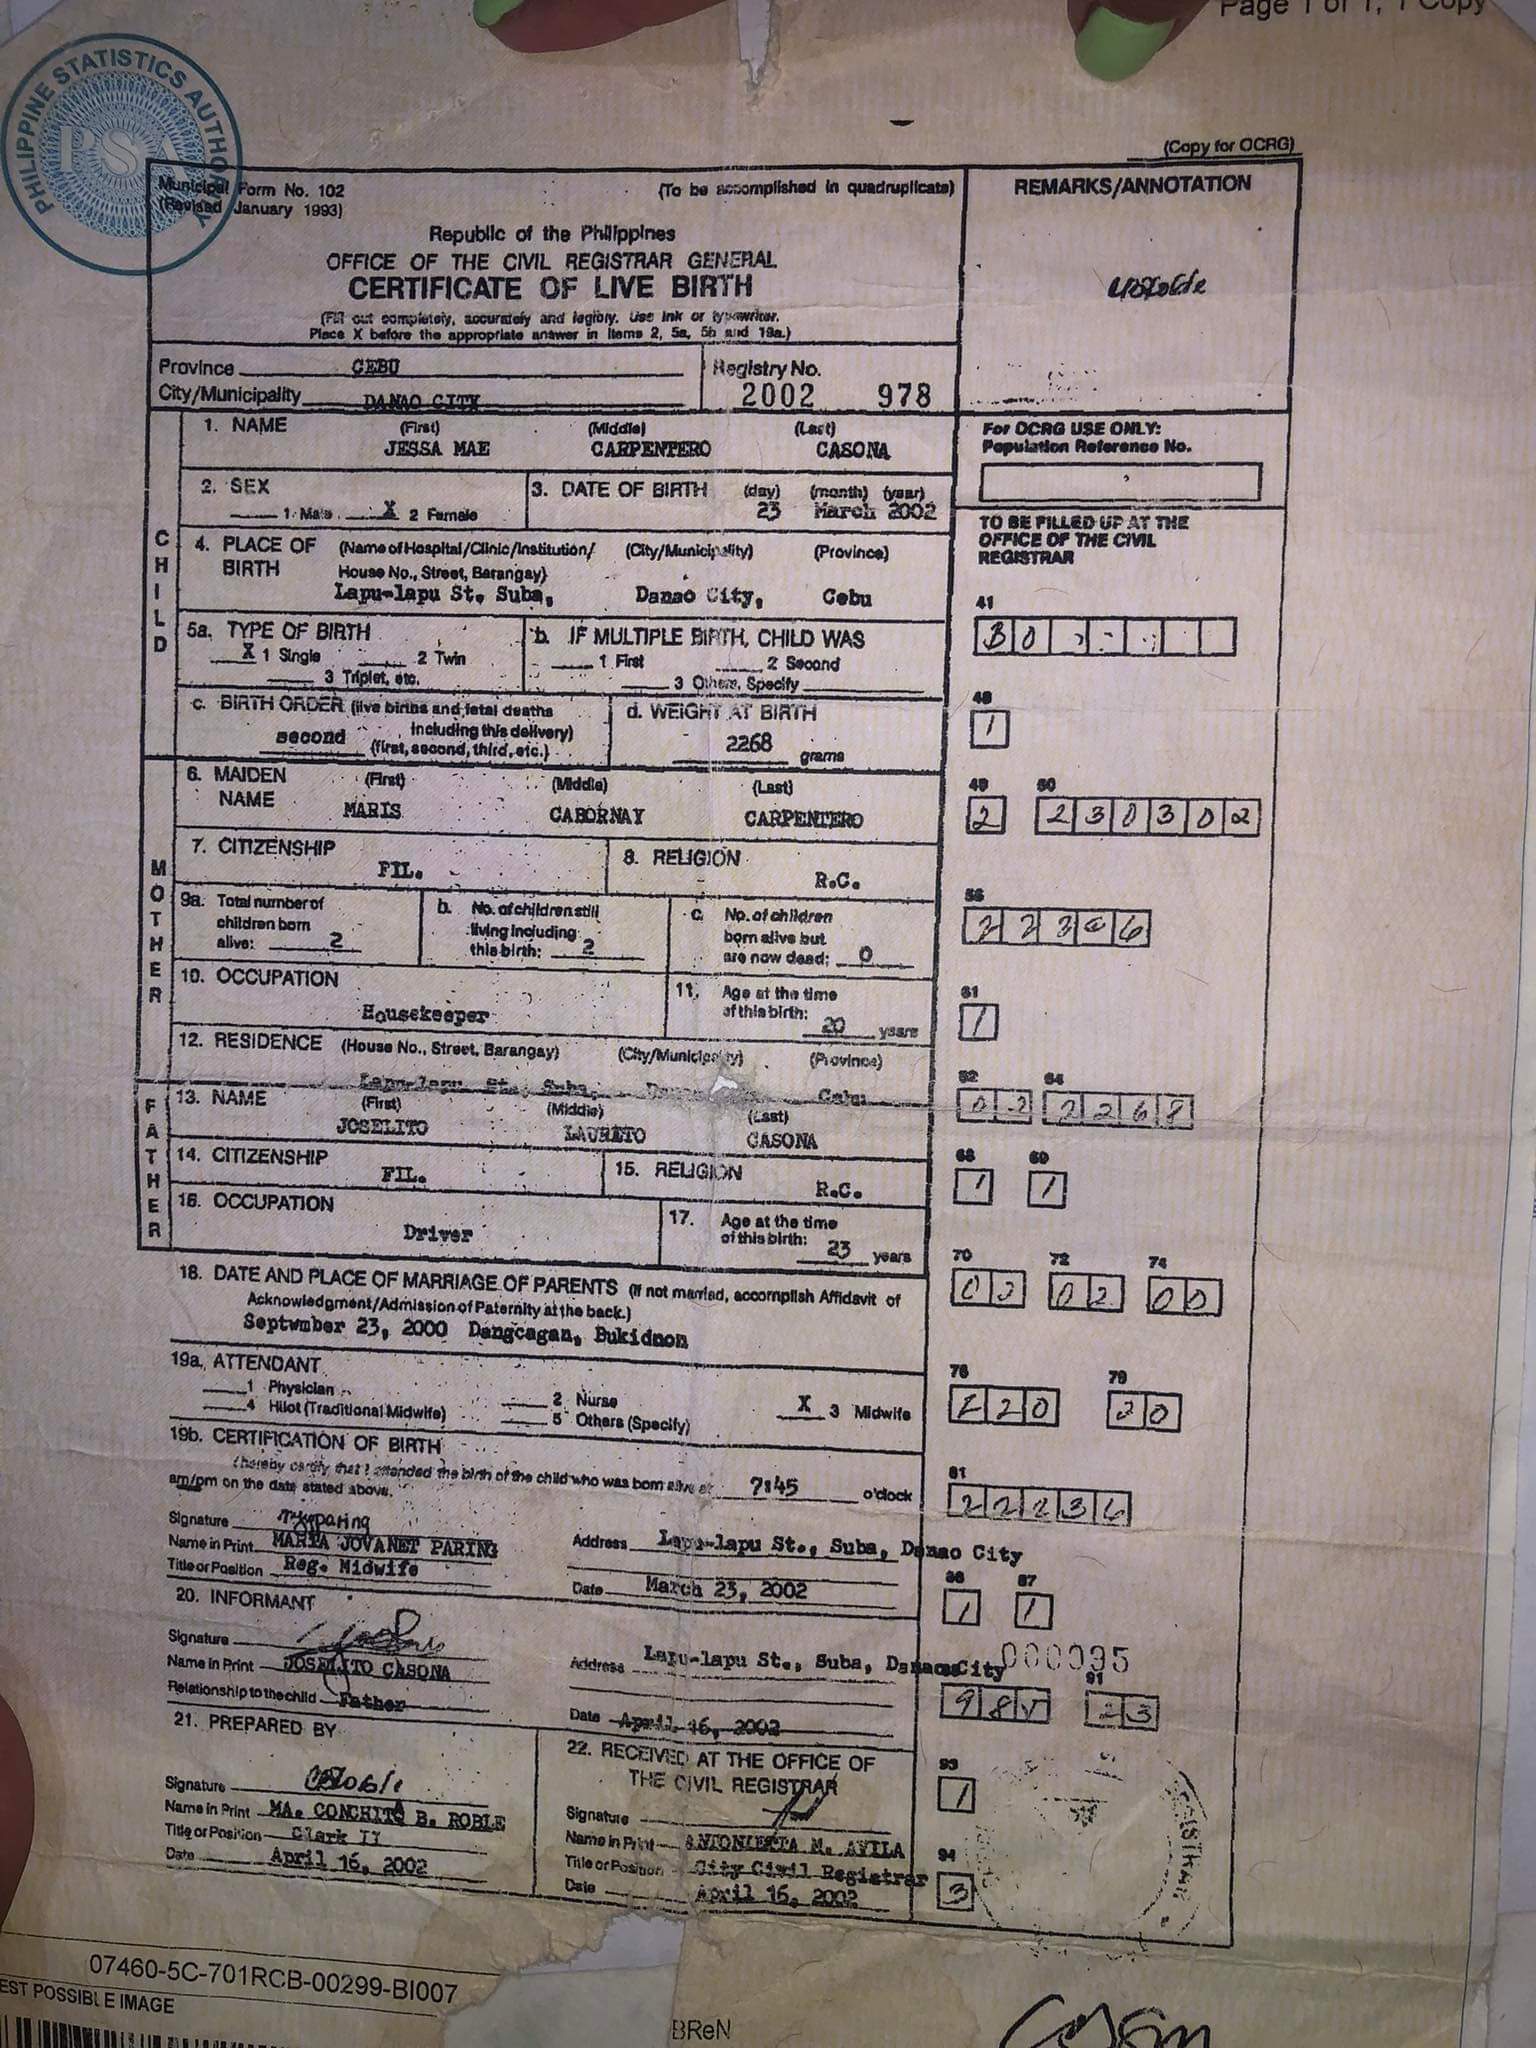 Page 1 of 1, 1 Copy
PHILIPPINE STATISTICS AUTHORITY
PSA
(Copy for OCRG)
Municipal Form No. 102
(Revised January 1993)
(To be accomplished in quadruplicate)
Republic of the Philippines
OFFICE OF THE CIVIL REGISTRAR GENERAL
CERTIFICATE OF LIVE BIRTH
(Fill out completely, accurately and legibly. Use ink or typewriter.
Place X before the appropriate answer in items 2, 5a, 5b and 19a.)
REMARKS/ANNOTATION
Province CEBU
City/Municipality DANAO CITY
Registry No.
2002 978
For OCRG USE ONLY:
Population Reference No.
TO BE FILLED UP AT THE
OFFICE OF THE CIVIL
REGISTRAR
CHILD
1. NAME (First) (Middle) (Last)
JESSA MAE CARPENTERO CASONA
2. SEX
1 Male X 2 Female
3. DATE OF BIRTH (day) (month) (year)
23 March 2002
4. PLACE OF BIRTH (Name of Hospital/Clinic/Institution/ (City/Municipality) (Province)
House No., Street, Barangay)
Lapu-lapu St. Suba, Danao City, Cebu
5a. TYPE OF BIRTH
X 1 Single 2 Twin
3 Triplet, etc.
b. IF MULTIPLE BIRTH, CHILD WAS
1 First 2 Second
3 Others, Specify
c. BIRTH ORDER (live births and fetal deaths
including this delivery)
second (first, second, third, etc.)
d. WEIGHT AT BIRTH
2268 grams
MOTHER
6. MAIDEN NAME (First) (Middle) (Last)
MARIS CABORNAY CARPENTERO
7. CITIZENSHIP
FIL.
8. RELIGION
R.C.
9a. Total number of
children born
alive: 2
b. No. of children still
living including
this birth: 2
c. No. of children
born alive but
are now dead: 0
10. OCCUPATION
Housekeeper
11. Age at the time
of this birth:
20 years
12. RESIDENCE (House No., Street, Barangay) (City/Municipality) (Province)
Lapu-lapu St., Suba, Cebu
FATHER
13. NAME (First) (Middle) (Last)
JOSELITO LAURETO CASONA
14. CITIZENSHIP
FIL.
15. RELIGION
R.C.
16. OCCUPATION
Driver
17. Age at the time
of this birth:
23 years
18. DATE AND PLACE OF MARRIAGE OF PARENTS (If not married, accomplish Affidavit of
Acknowledgment/Admission of Paternity at the back.)
Septwmber 23, 2000 Dangcagan, Bukidnon
19a. ATTENDANT
1 Physician 2 Nurse X 3 Midwife
4 Hilot (Traditional Midwife) 5 Others (Specify)
19b. CERTIFICATION OF BIRTH
I hereby certify that I attended the birth of the child who was born alive at 7:45 o'clock
am/pm on the date stated above.
Signature
Name in Print MARIA JOVANET PARING
Title or Position Reg. Midwife
Address Lapu-lapu St., Suba, Danao City
Date March 23, 2002
20. INFORMANT
Signature
Name in Print JOSELITO CASONA
Relationship to the child Father
Address Lapu-lapu St., Suba, Danao City
Date April 16, 2002
21. PREPARED BY
Signature
Name in Print MA. CONCHITA B. ROBLE
Title or Position Clerk II
Date April 16, 2002
22. RECEIVED AT THE OFFICE OF
THE CIVIL REGISTRAR
Signature
Name in Print ANTONIETTA M. AVILA
Title or Position City Civil Registrar
Date April 16, 2002
41
48
1
49 50
2 230302
56
61
1
62 64
02 2268
68 69
1 1
70 72 74
02 02 00
76 79
220 20
81
22236
86 87
1 1
91
23
93
1
94
3
07460-5C-701RCB-00299-BI007
EST POSSIBLE IMAGE
BReN